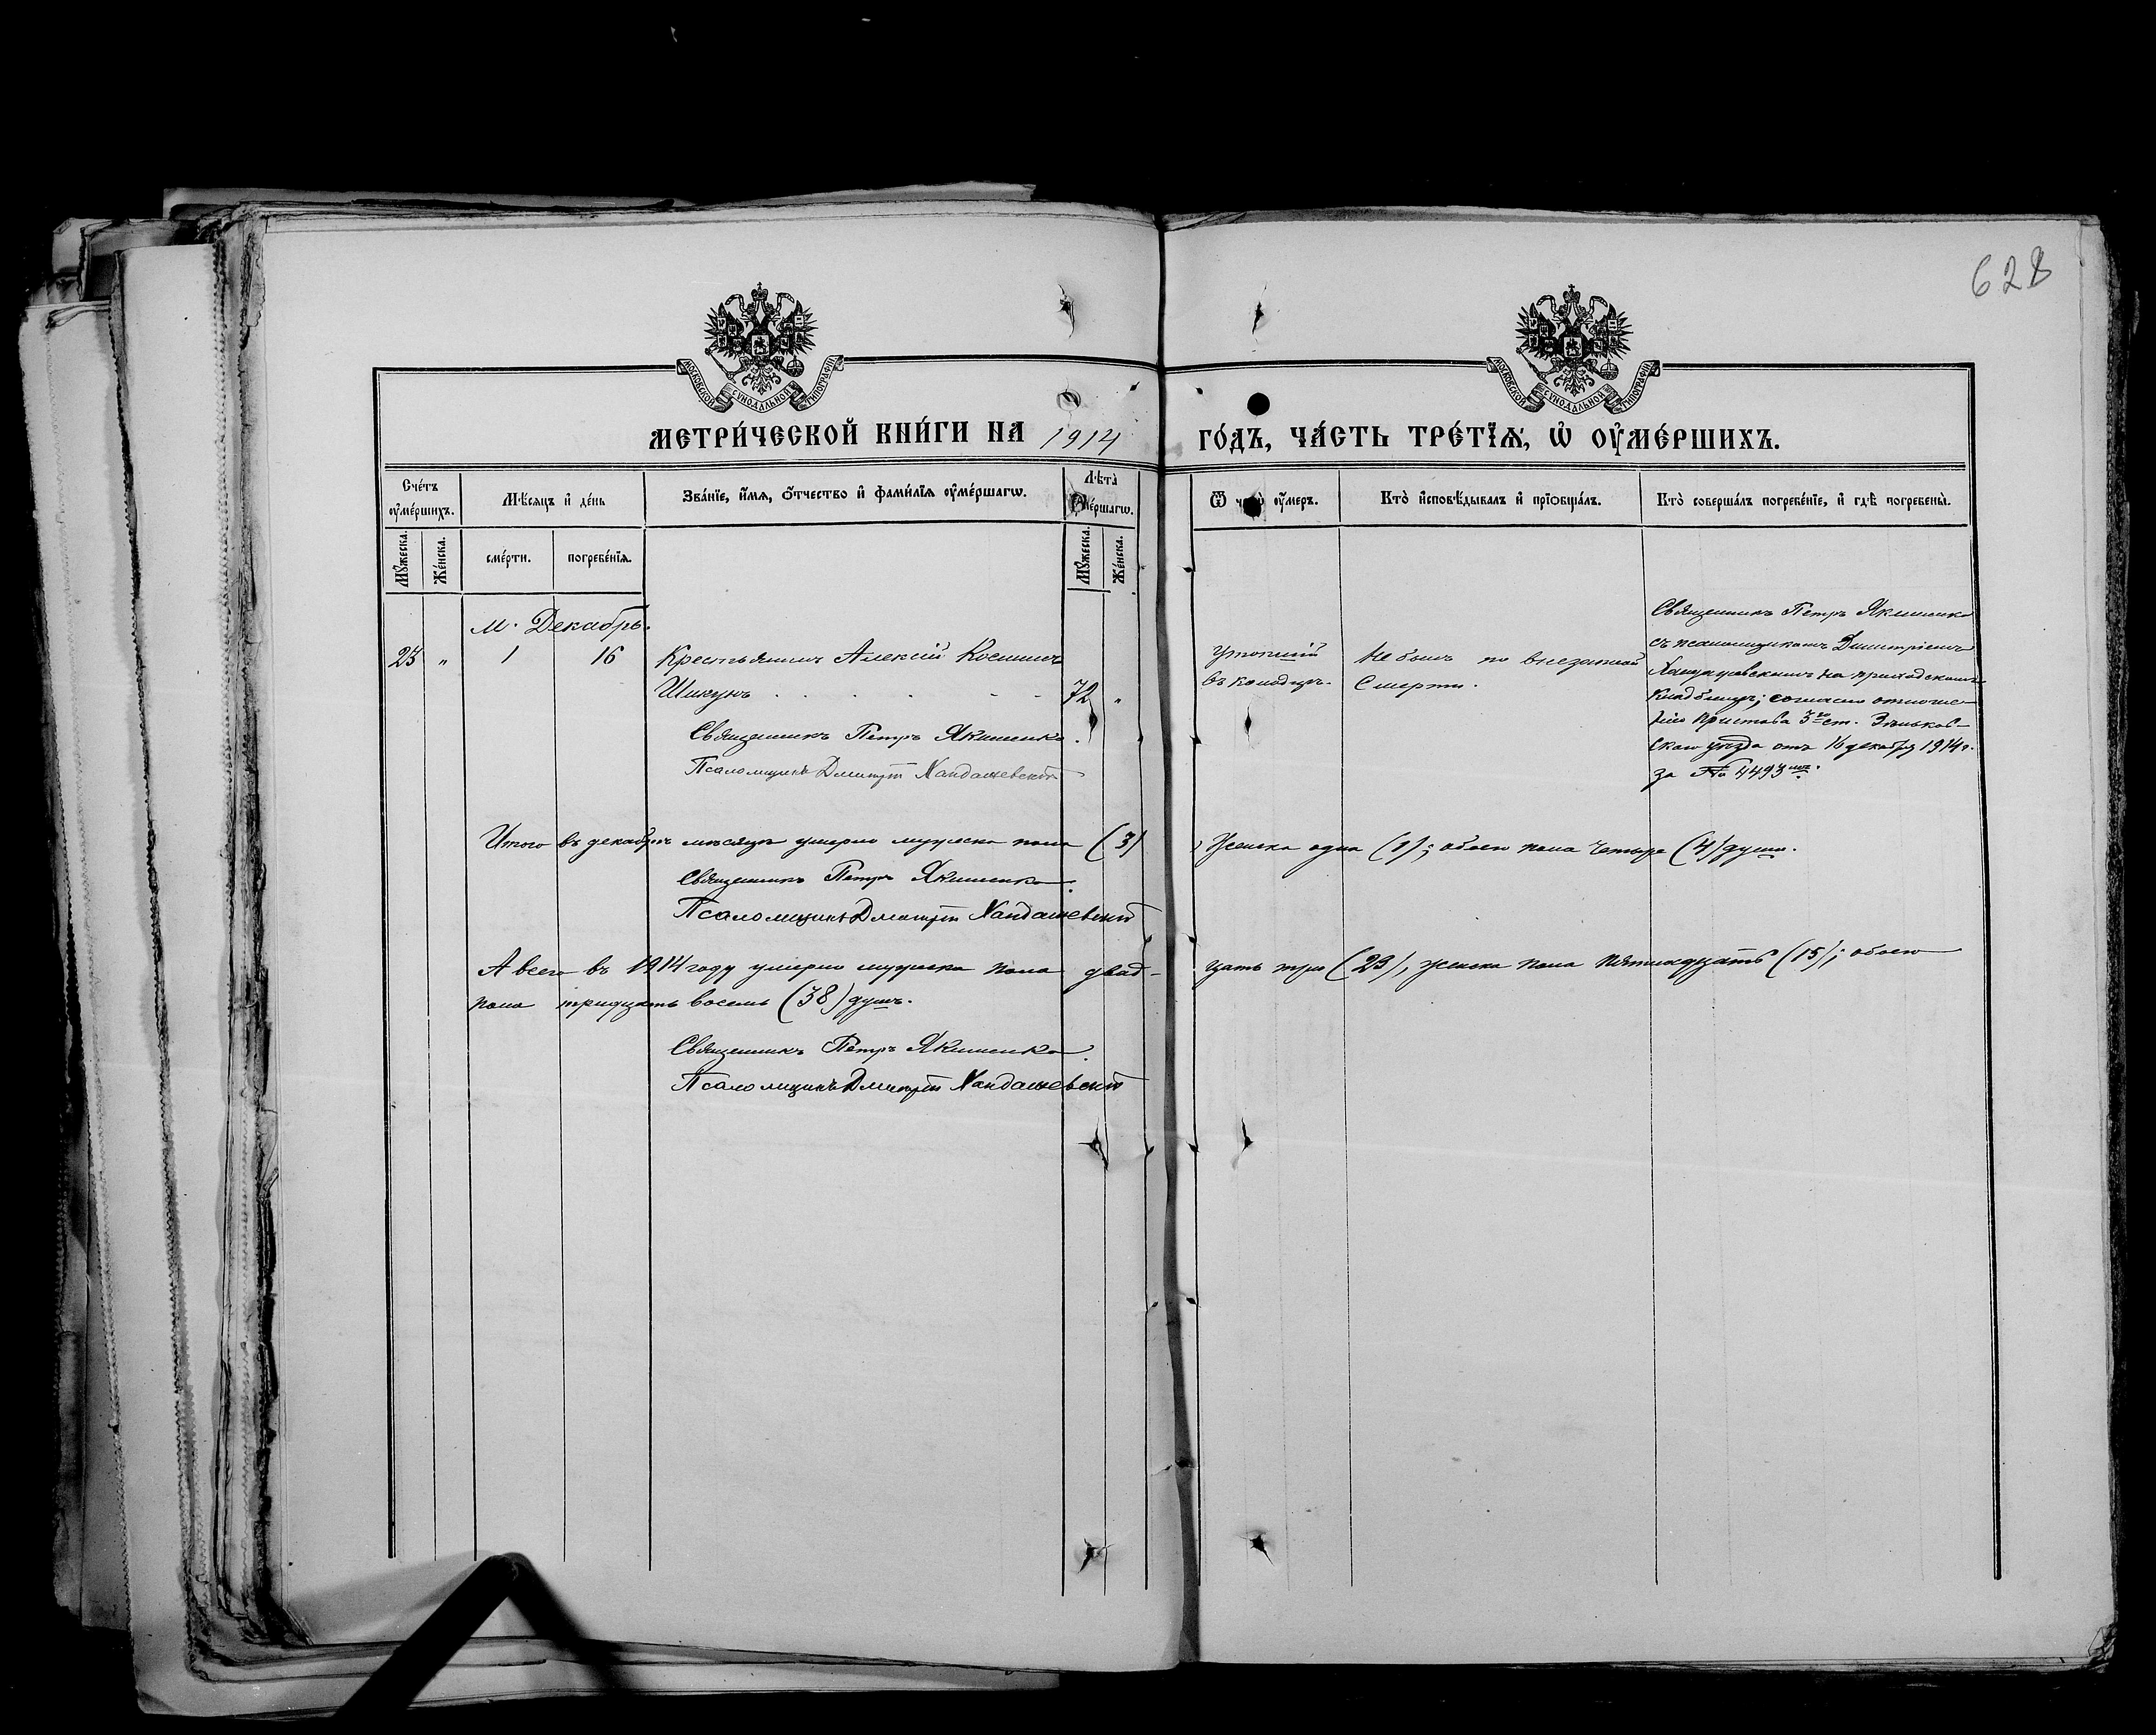 628
МОСКОВСКОЙ СУНОДАЛЬНОЙ ТИПОГРАФІИ
МОСКОВСКОЙ СУНОДАЛЬНОЙ ТИПОГРАФІИ
МЕТРИ́ЧЕСКОЙ КНИ́ГИ НА 1914 ГО́ДЪ, ЧА́СТЬ ТРЕ́ТЇѦ, Ѡ҆ ОУ҆МЕ́РШИХЪ.
Сче́тъ оу҆ме́ршихъ.
Мѣ́сяцъ и҆ де́нь
Зва́нїе, и҆́мя, о҆́тчество и҆ фами́лїя оу҆ме́ршагѡ.
Лѣта̀ ме́ршагѡ.
Ѿ чегѡ̀ оу҆́меръ.
Кто̀ и҆сповѣ́дывалъ и҆ прїѻбща́лъ.
Кто̀ соверша́лъ погребе́нїе, и҆ гдѣ̀ погребены̀.
Мꙋ́жеска.
Же́нска.
сме́рти.
погребе́нїя.
Мꙋ́жеска.
Же́нска.
М. Декабрь.
23 " 1 16 Крестьянинъ Алексій Косминъ
Шикунъ . . . . . . 72 "
Священникъ Петръ Якименко.
Псаломщикъ Дмитрій Хандажевскій
утопшій
въ колодцѣ.
Не былъ по внезапной
смерти.
Священникъ Петръ Якименко
съ псаломщикомъ Димитріемъ
Хандажевскимъ на приходскомъ
кладбищѣ; согласно отноше-
нію Пристава 3го ст. Зѣньков-
скаго уѣзда отъ 16 декабря 1914 г.
за № 4493мъ.
Итого въ декабрѣ мѣсяцѣ умерло мужеска пола (3) женска одна (1); обоего пола четыре (4) души.
Священникъ Петръ Якименко.
Псаломщикъ Дмитрій Хандажевскій
А всего въ 1914 году умерло мужеска пола двад- цать три (23), женска пола пятнадцать (15); обоего
пола тридцать восемь (38) душъ.
Священникъ Петръ Якименко.
Псаломщикъ Дмитрій Хандажевскій